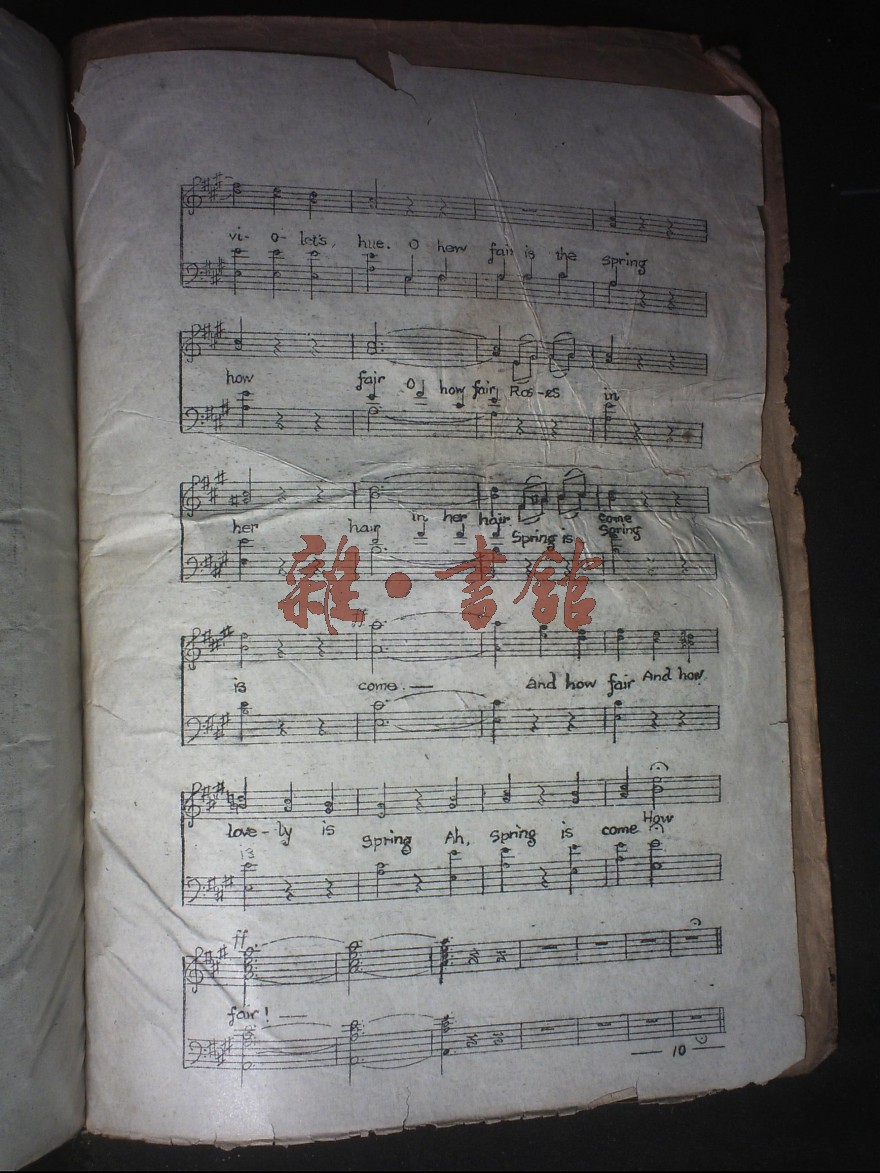 vi- o- let's, hue. O how fair is the spring
how fair O how fair Ros-es in
her hair in her hair Spring is come
Spring
雜·書館
ff
is come. — and how fair And how
love-ly is Spring Ah, spring is come How
is
ff
fair! —
— 10 —